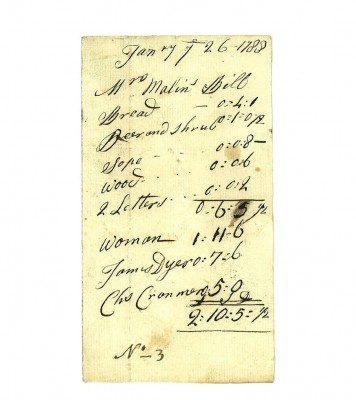 Jan'y ye 26 - 1788
Mrs Malin's Bill
Bread - 0:4:1
Beer and Shrub 0:1:0½
Sope 0:0:8-
Wood 0:0:6
2 Letters 0:0:2
0:6:5½
Woman 1:11:6
James Dyer 0:7:6
Chs Cranmer 0:5:0
2:10:5:½
No-3